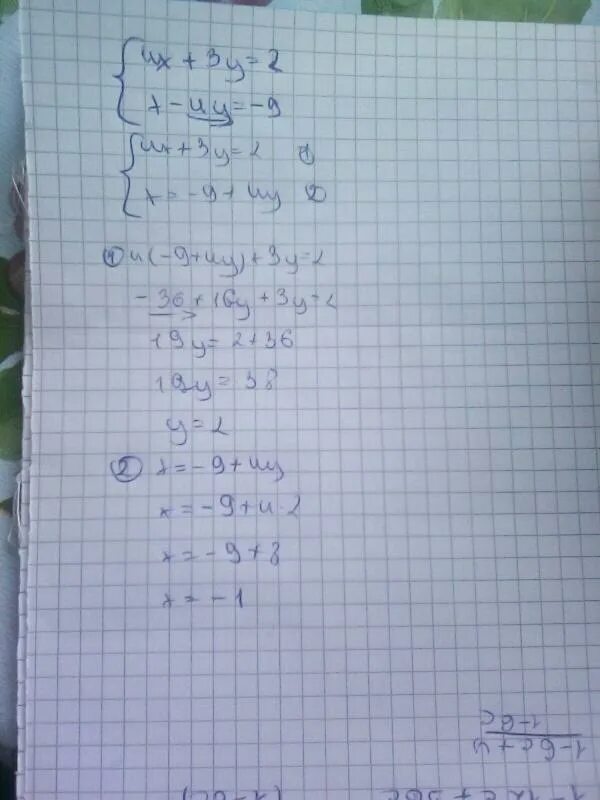 4x + 3y = 2
x - 4y = -9
4x + 3y = 2 ①
x = -9 + 4y ②
① 4(-9+4y)+3y=2
-36+16y+3y=2
19y = 2+36
19y = 38
y = 2
② x = -9+4y
x = -9+4·2
x = -9+8
x = -1